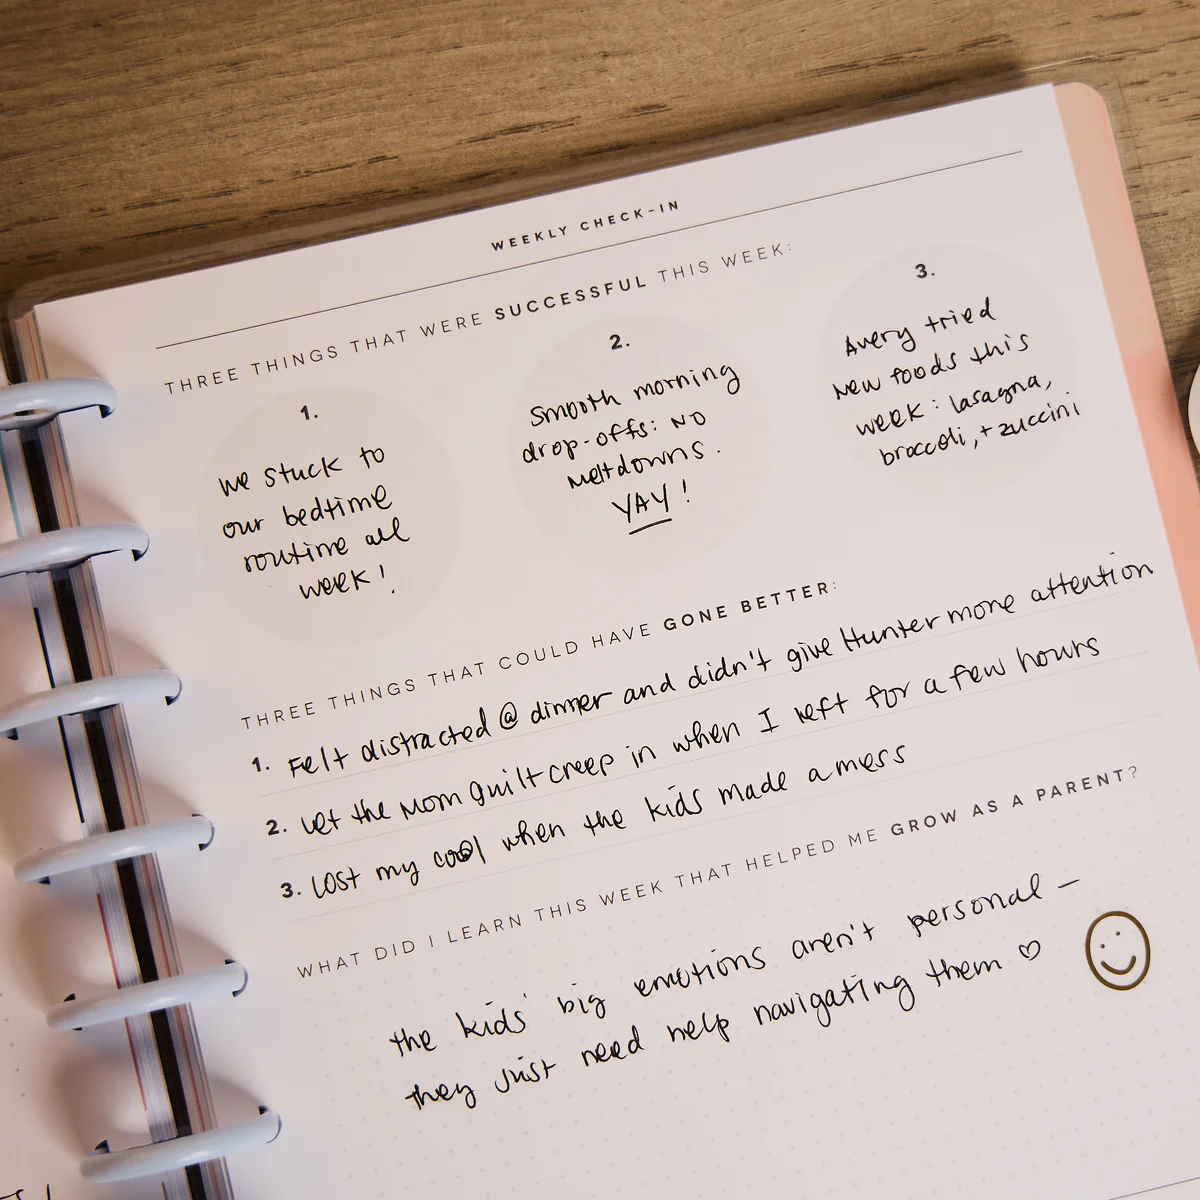 WEEKLY CHECK-IN
THREE THINGS THAT WERE SUCCESSFUL THIS WEEK:
1.
we stuck to
our bedtime
routine all
week!
2.
Smooth morning
drop-offs: NO
meltdowns.
YAY!
3.
Avery tried
New foods this
week: lasagna,
broccoli, + zuccini
THREE THINGS THAT COULD HAVE GONE BETTER:
1. Felt distracted @ dinner and didn't give Hunter more attention
2. Let the Mom guilt creep in when I left for a few hours
3. Lost my cool when the kids made a mess
WHAT DID I LEARN THIS WEEK THAT HELPED ME GROW AS A PARENT?
the kids' big emotions aren't personal —
they just need help navigating them ♡